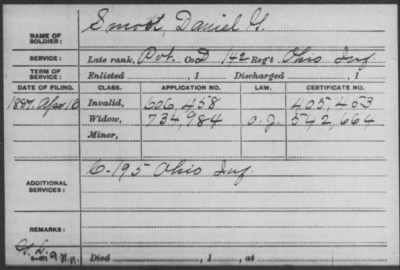 NAME OF SOLDIER: Smoot, Daniel G.
SERVICE: Late rank, Pvt. Co. D 142 Reg't Ohio Inf
TERM OF SERVICE: Enlisted , 1 Discharged , 1
DATE OF FILING. CLASS. APPLICATION NO. LAW. CERTIFICATE NO.
1887. Apr. 16 Invalid, 606,458 405,453
Widow, 734,984 542,664
Minor,
ADDITIONAL SERVICES: C-195 Ohio Inf
REMARKS:
Died , 1 , at